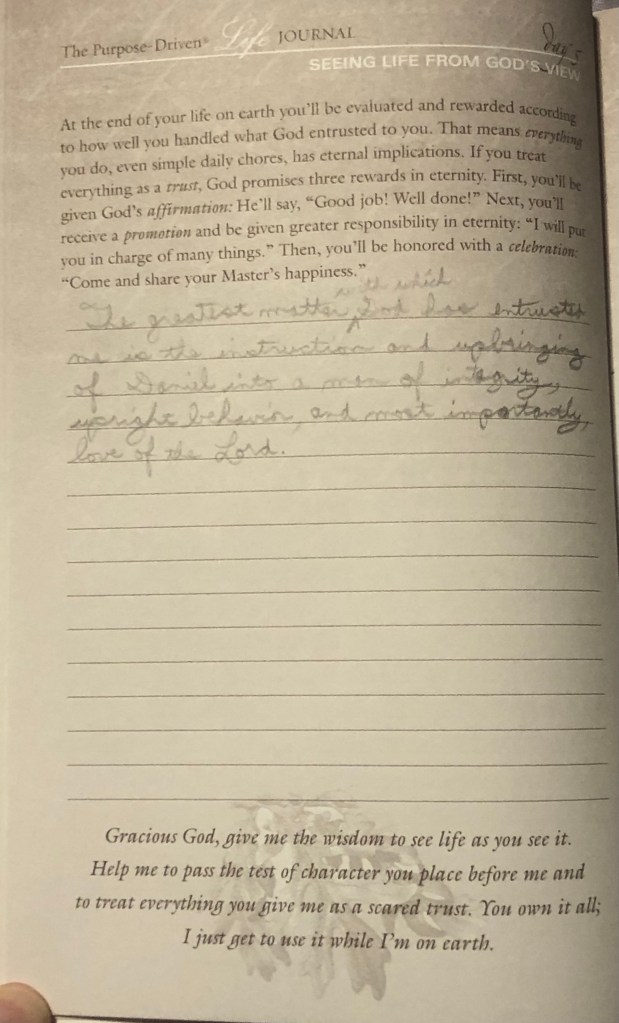 The Purpose-Driven® Life JOURNAL
Day 5
SEEING LIFE FROM GOD'S VIEW
At the end of your life on earth you'll be evaluated and rewarded according
to how well you handled what God entrusted to you. That means everything
you do, even simple daily chores, has eternal implications. If you treat
everything as a trust, God promises three rewards in eternity. First, you'll be
given God's affirmation: He'll say, “Good job! Well done!” Next, you'll
receive a promotion and be given greater responsibility in eternity: “I will put
you in charge of many things.” Then, you'll be honored with a celebration:
“Come and share your Master's happiness.”
with which
The greatest matter ^ God has entrusted
me is the instruction and upbringing
of Daniel into a man of integrity,
upright behavior, and most importantly,
love of the Lord.
Gracious God, give me the wisdom to see life as you see it.
Help me to pass the test of character you place before me and
to treat everything you give me as a scared trust. You own it all;
I just get to use it while I'm on earth.